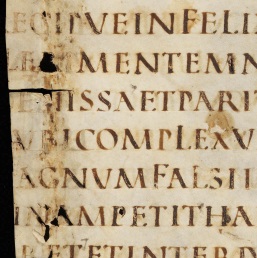 ECIPVEINFELI
LERIMENTEMN
ENISSAETPARIT
VBICOMPLEXV
AGNVMFALSII
INAMPETITHA
RETETINTERD